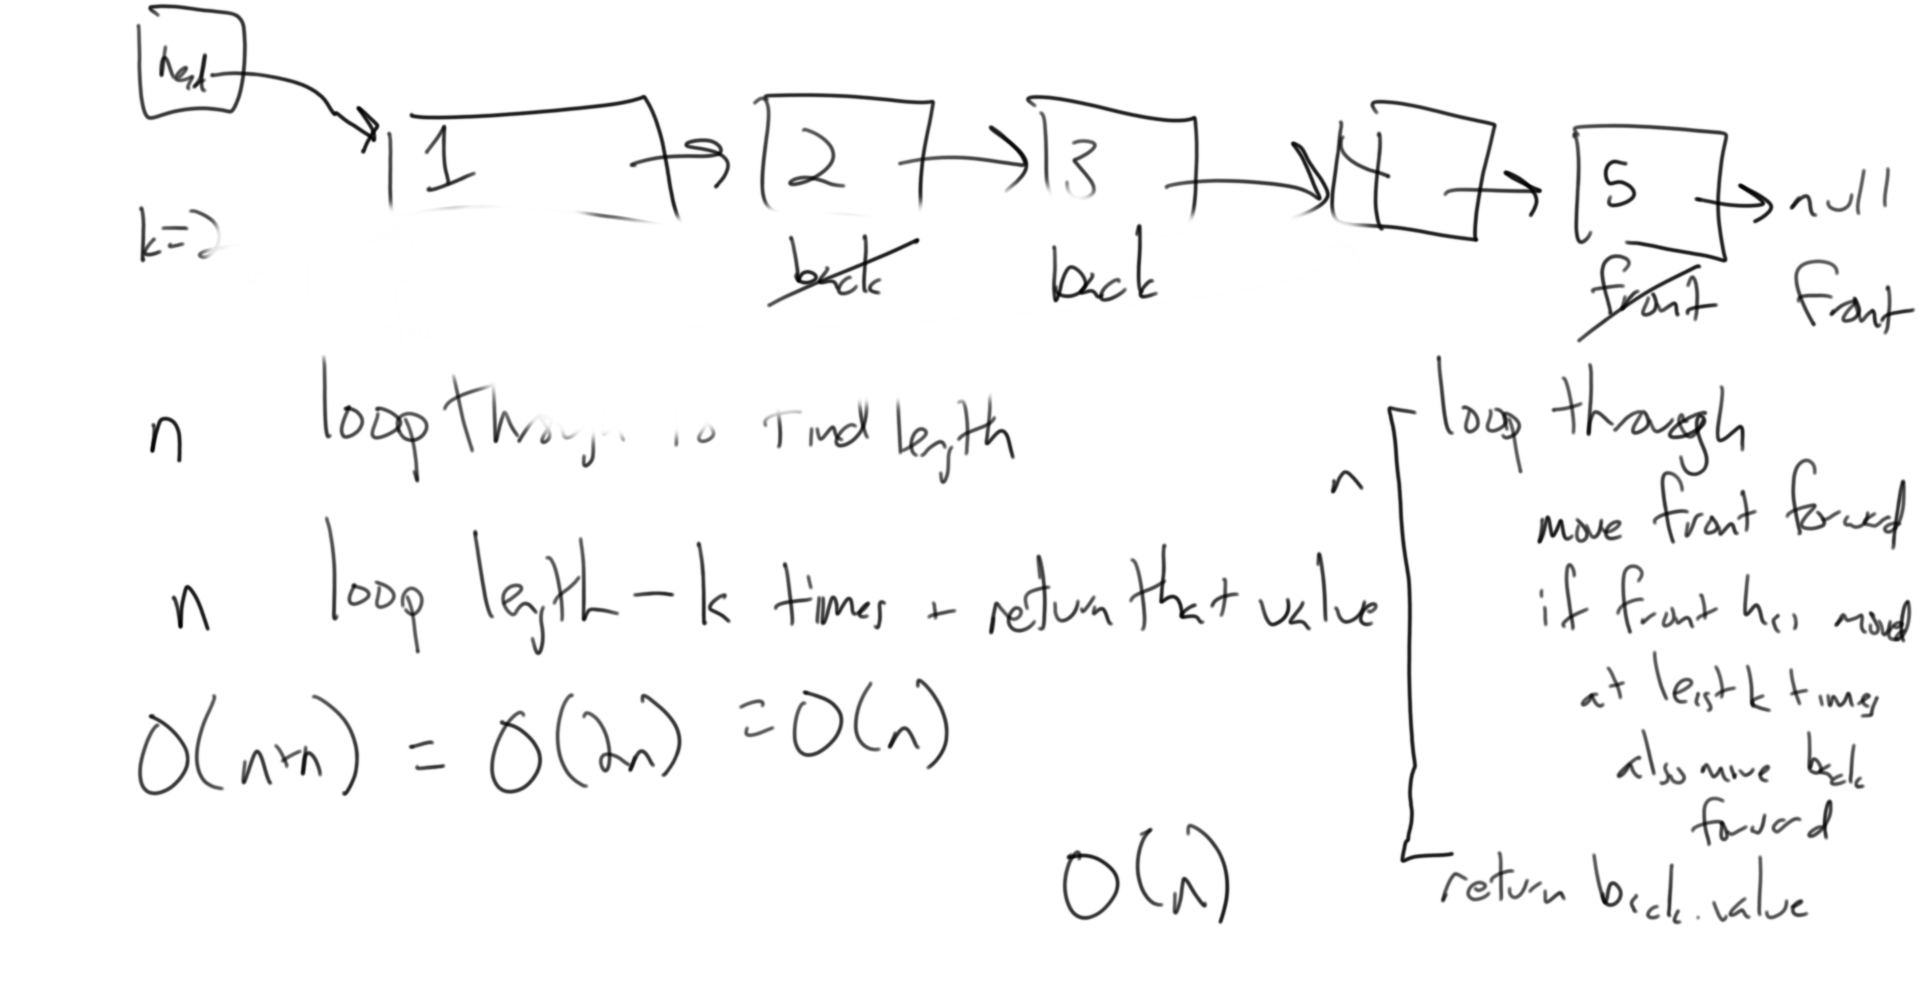 head
1 2 3 4 5 null
k=2
back back front front
n loop through to find length
n loop length - k times + return that value
O(n+n) = O(2n) = O(n)
n loop through
move front forward
if front has moved
at least k times
also move back
forward
return back.value
O(n)